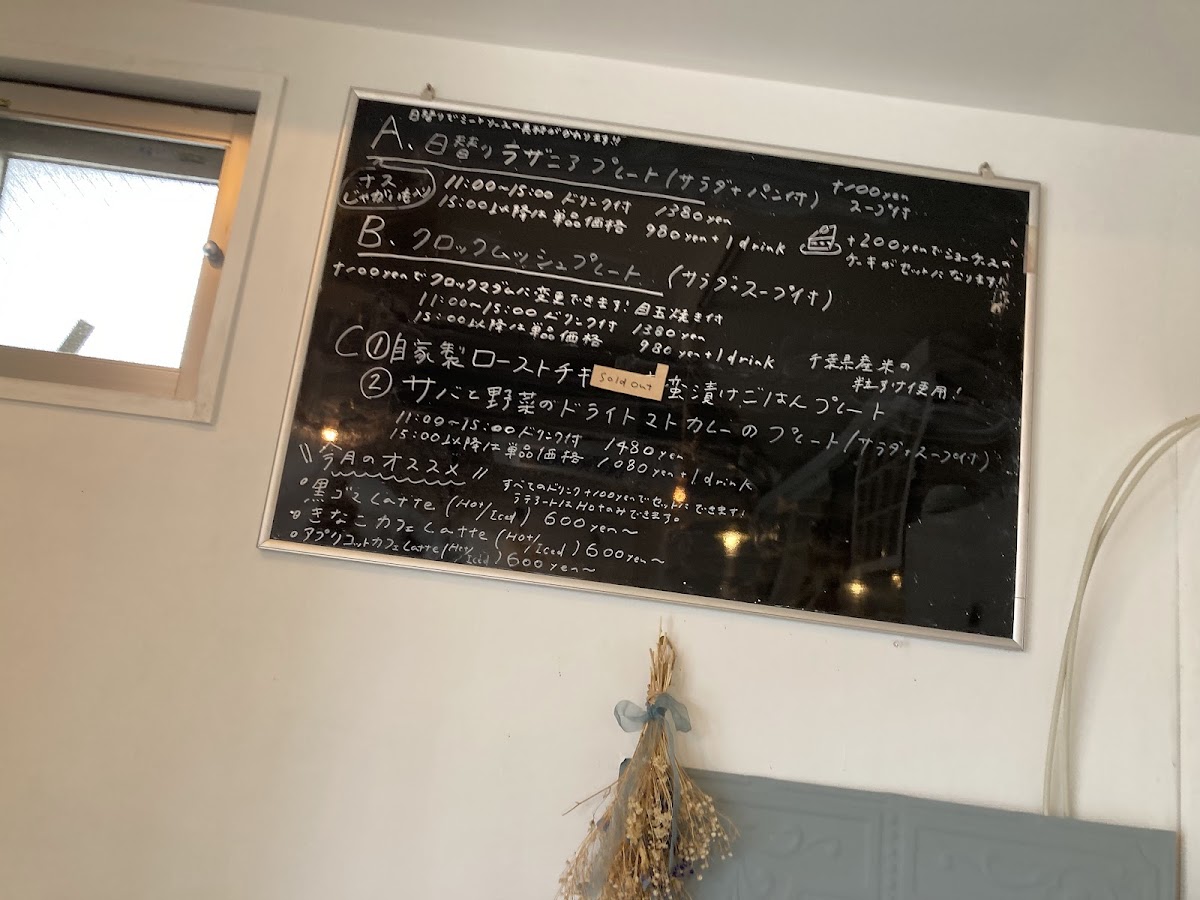 日替りでミートソースの具材がかわります!!
A. 日替り ラザニアプレート (サラダ+パン付) +100yen スープ付
ナス じゃがいも入り
11:00~15:00 ドリンク付 1380yen
15:00以降は単品価格 980yen+1drink
+200yenでショーケースの
ケーキがセットになります!
B. クロックムッシュプレート (サラダ+スープ付)
+100yenでクロックマダムに変更できます! 目玉焼き付
11:00~15:00 ドリンク付 1380yen
15:00以降は単品価格 980yen+1drink
千葉県産米の
粒すけ使用!
C ①自家製ローストチキ sold out 漬けごはんプレート
② サバと野菜のドライトマトカレーのプレート(サラダ+スープ付)
11:00~15:00 ドリンク付 1480yen
15:00以降は単品価格 1080yen+1drink
\\今月のオススメ//
すべてのドリンク+100yenでセットにできます!
ラテアートはHotのみできます。
°黒ゴマLatte (Hot/Iced) 600yen~
°きなこカフェLatte (Hot/Iced) 600yen~
°アプリコットカフェLatte (Hot/Iced) 600yen~